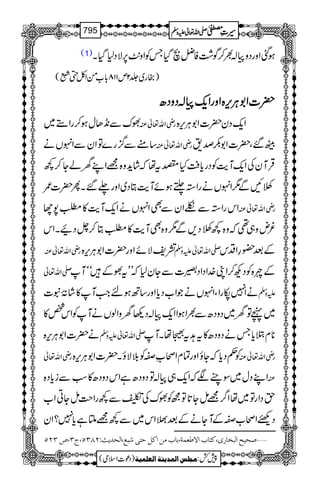 سیرتِ مصطفیٰ صلی اللہ تعالیٰ علیہ وسلم 795
ہوگئی اور دو پیالہ بھر کر گوشت فاضل بچ گیا جس کو اونٹ پر لاد لیا گیا۔ (1)
(بخاری جلد۲ ص۸۱۱ باب من اکل حتی شبع)
حضرت ابوہریرہ اور ایک پیالہ دودھ
ایک دن حضرت ابوہریرہ رضی اللہ تعالیٰ عنہ بھوک سے نڈھال ہو کر راستے میں
بیٹھ گئے، حضرت ابوبکر صدیق رضی اللہ تعالیٰ عنہ سامنے سے گزرے تو ان سے انہوں نے
قرآن کی ایک آیت کو دریافت کیا مقصد یہ تھا کہ شاید وہ مجھے اپنے گھر لے جا کر کچھ
کھلائیں گے مگر انہوں نے راستہ چلتے ہوئے آیت بتا دی اور چلے گئے۔ پھر حضرت عمر
رضی اللہ تعالیٰ عنہ اس راستہ سے نکلے ان سے بھی انہوں نے ایک آیت کا مطلب پوچھا
غرض وہی تھی کہ وہ کچھ کھلا دیں گے مگر وہ بھی آیت کا مطلب بتا کر چل دئیے۔ اس
کے بعد حضور اقدس صلی اللہ تعالیٰ علیہ وسلم تشریف لائے اور حضرت ابوہریرہ رضی اللہ تعالیٰ عنہ
کے چہرے کو دیکھ کر اپنی خداداد بصیرت سے جان لیا کہ ”یہ بھوکے ہیں“ آپ صلی اللہ تعالیٰ
علیہ وسلم نے انہیں پکارا، انہوں نے جواب دیا اور ساتھ ہولئے جب آپ کاشانۂ نبوت
میں پہنچے تو گھر میں دودھ سے بھرا ہوا ایک پیالہ دیکھا۔ گھر والوں نے آپ کو اس شخص کا
نام بتلایا جس نے دودھ کا یہ ہدیہ بھیجا تھا۔ آپ صلی اللہ تعالیٰ علیہ وسلم نے حضرت ابوہریرہ
رضی اللہ تعالیٰ عنہ کو حکم دیا کہ جاؤ اور تمام اصحاب صفہ کو بلا لاؤ۔ حضرت ابوہریرہ رضی
اللہ تعالیٰ عنہ اپنے دل میں سوچنے لگے کہ ایک ہی پیالہ تو دودھ ہے اس دودھ کا سب سے زیادہ
حق دار تو میں تھا اگر مجھے مل جاتا تو مجھ کو بھوک کی تکلیف سے کچھ راحت مل جاتی اب
دیکھئے اصحاب صفہ کے آ جانے کے بعد بھلا اس میں سے کچھ مجھے ملتا ہے یا نہیں؟ ان
صحیح البخاری، کتاب الاطعمۃ، باب من اکل حتی شبع، الحدیث: ۵۳۸۲، ج۳، ص۵۲۳
پیش کش: مجلس المدینۃ العلمیۃ (دعوتِ اسلامی)